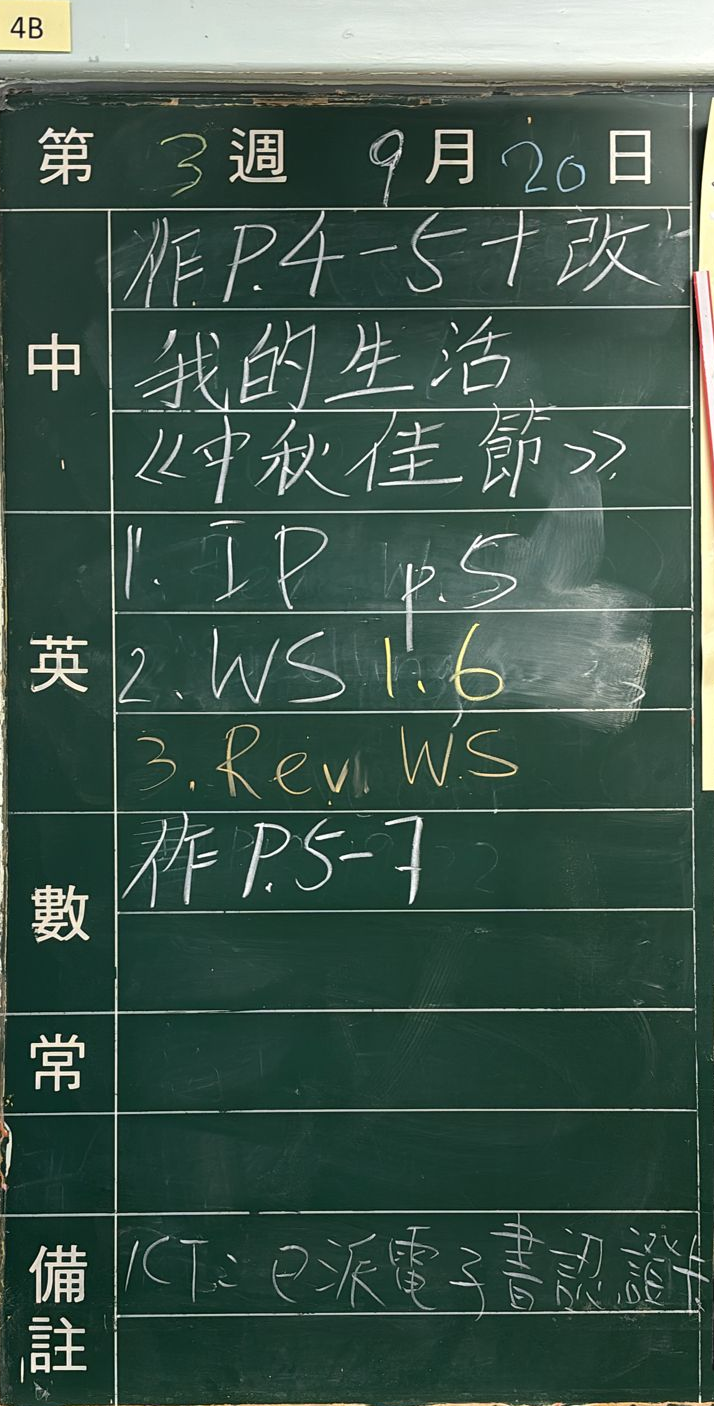 4B
第 3 週 9 月 20 日
中
作 P.4-5 + 改
我的生活
《中秋佳節》
英
1. IP p.5
2. WS 1.6
3. Rev. WS
數
作 P.5-7
常
備註
ICT: 已派電子書認證卡